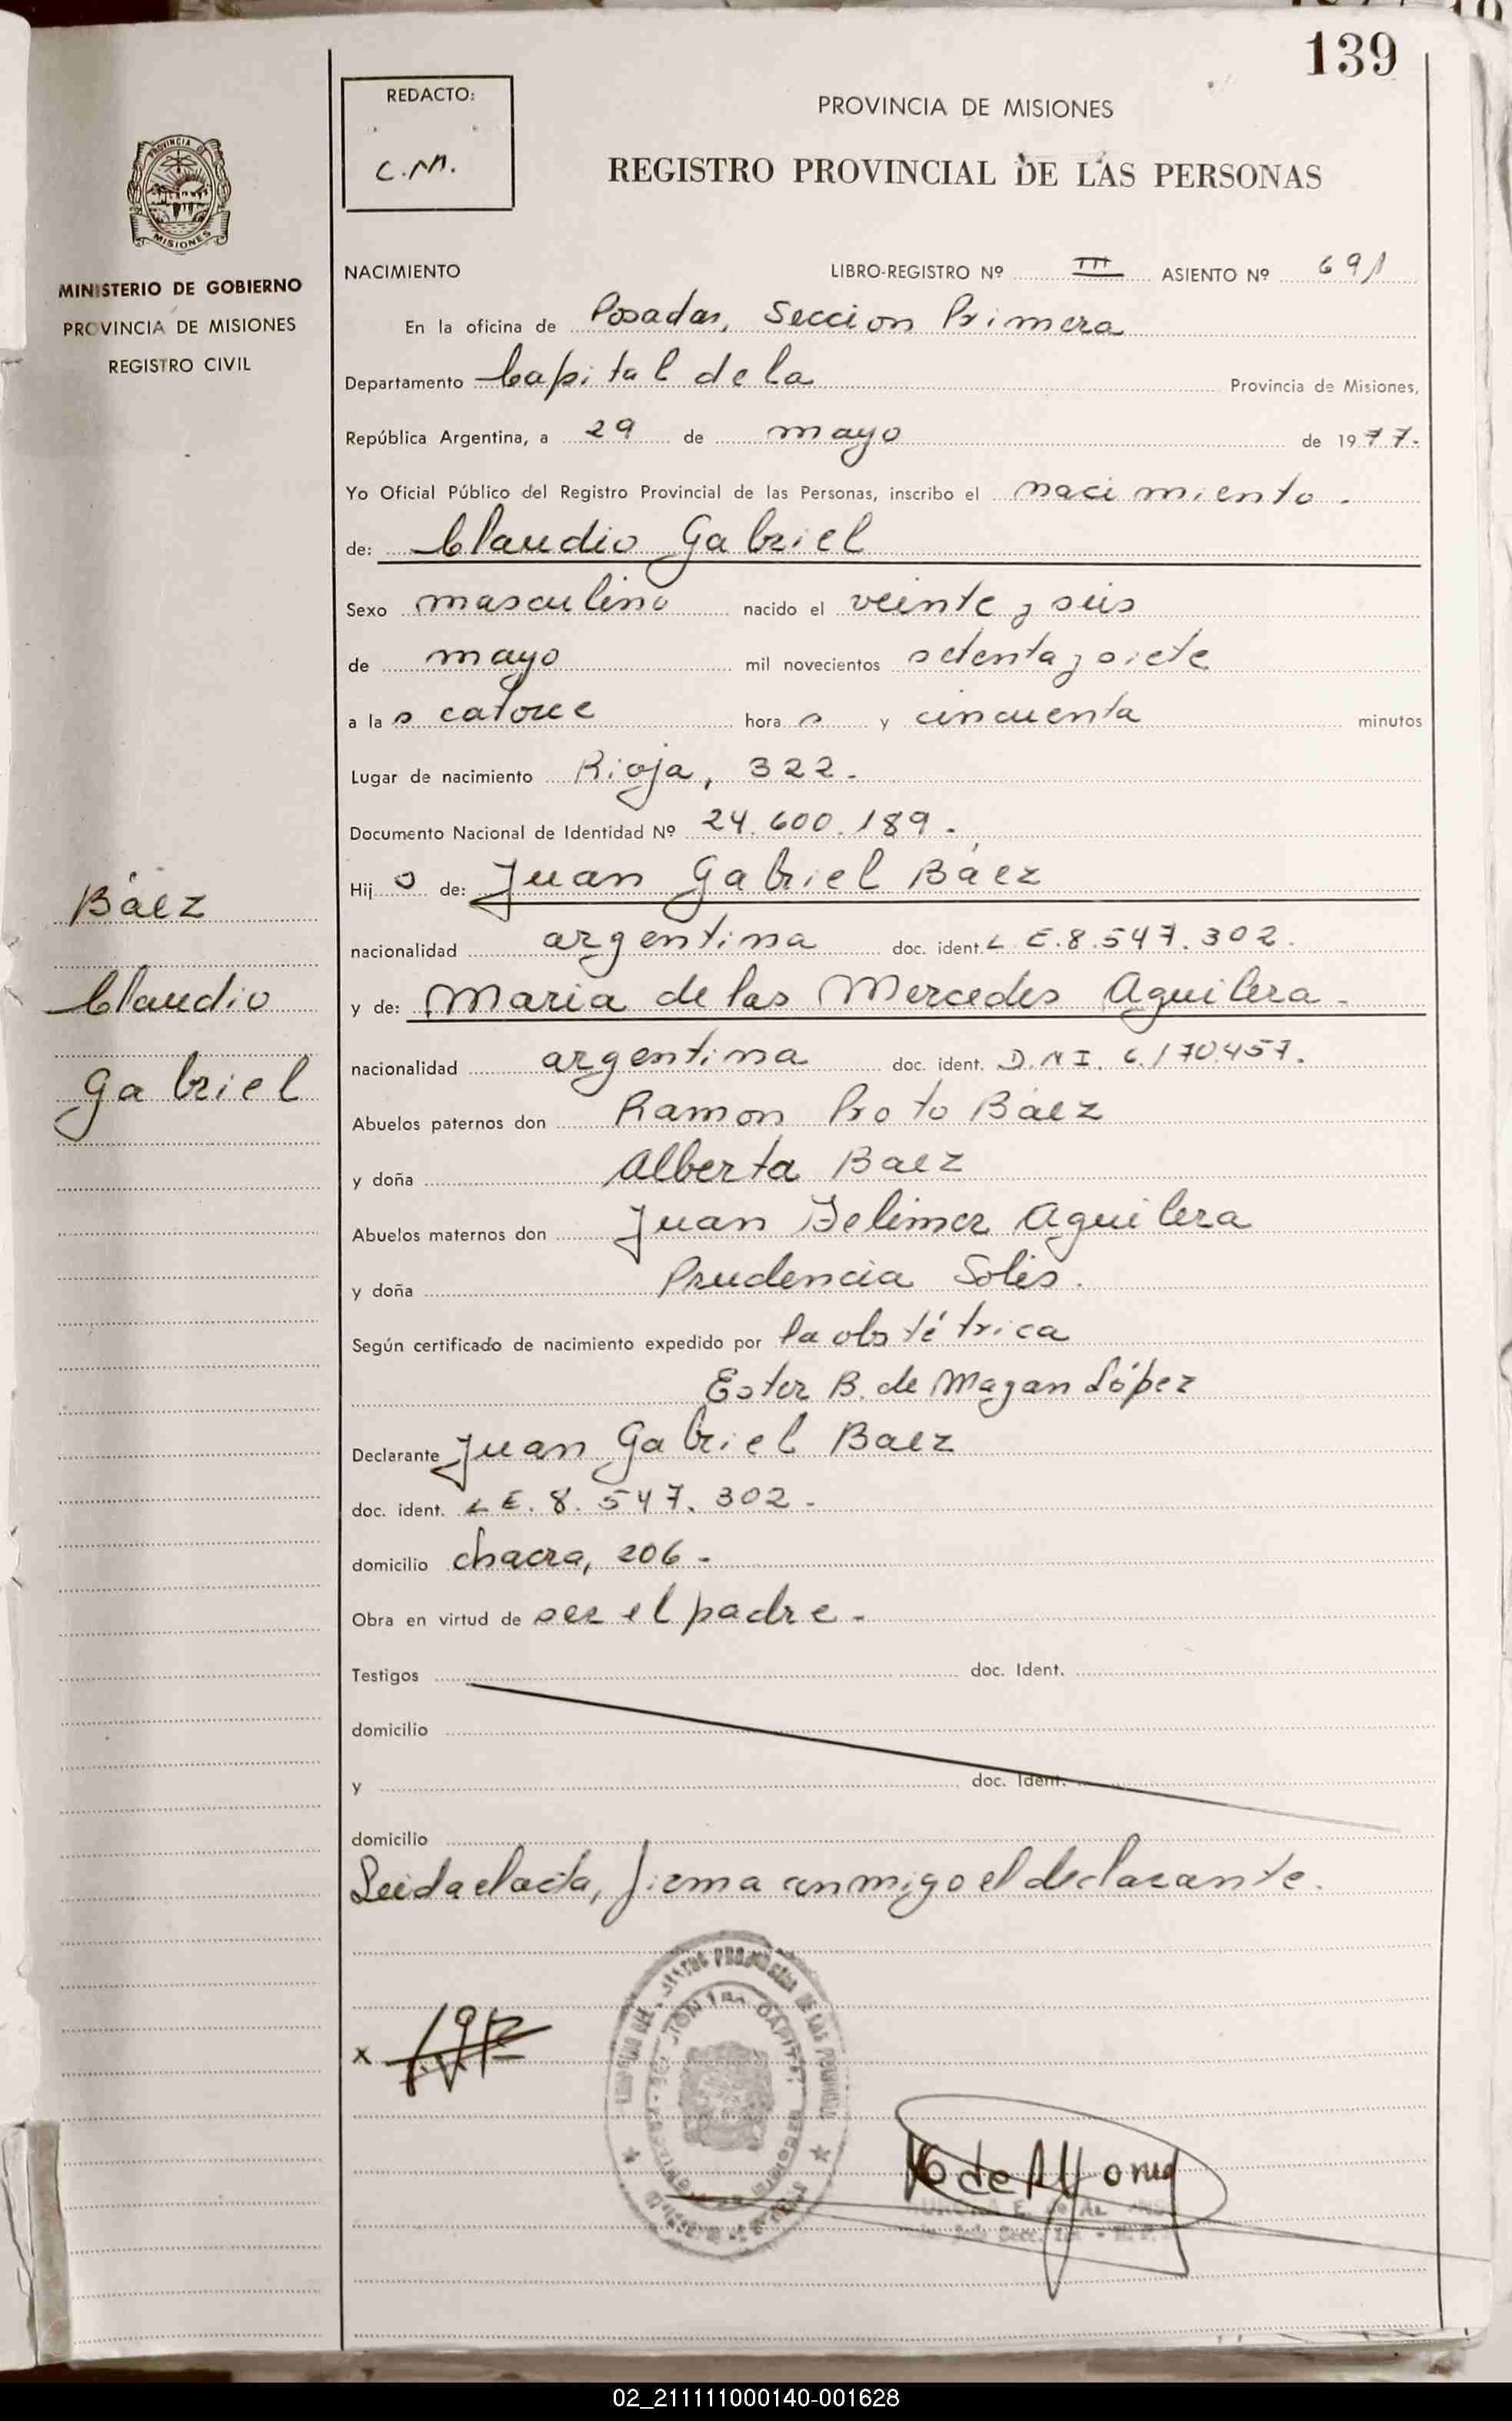 139
REDACTO:
C.M.
PROVINCIA DE MISIONES
REGISTRO PROVINCIAL DE LAS PERSONAS
PROVINCIA DE
MISIONES
MINISTERIO DE GOBIERNO
PROVINCIA DE MISIONES
REGISTRO CIVIL
NACIMIENTO LIBRO-REGISTRO Nº III ASIENTO Nº 691
En la oficina de Posadas, Seccion Primera
Departamento Capital de la Provincia de Misiones,
República Argentina, a 29 de mayo de 1977.
Yo Oficial Público del Registro Provincial de las Personas, inscribo el nacimiento.
de: Claudio Gabriel
Sexo masculino nacido el veinte y seis
de mayo mil novecientos setenta y siete
a las catorce horas y cincuenta minutos
Lugar de nacimiento Rioja, 322.
Documento Nacional de Identidad Nº 24.600.189.
Hijo de: Juan Gabriel Báez
nacionalidad argentina doc. ident. L.E. 8.547.302.
y de: Maria de las Mercedes Aguilera.
nacionalidad argentina doc. ident. D.N.I. 6.170.457.
Abuelos paternos don Ramon Proto Báez
y doña Alberta Baez
Abuelos maternos don Juan Aguilera
y doña Prudencia Solis.
Según certificado de nacimiento expedido por la obstétrica
Ester B. de Magan López
Declarante Juan Gabriel Baez
doc. ident. L.E. 8.547.302.
domicilio chacra, 206.
Obra en virtud de ser el padre.
Testigos doc. Ident.
domicilio
y doc. Ident.
domicilio
Leida el acta, firma conmigo el declarante.
Báez
Claudio
Gabriel
x
02_211111000140-001628